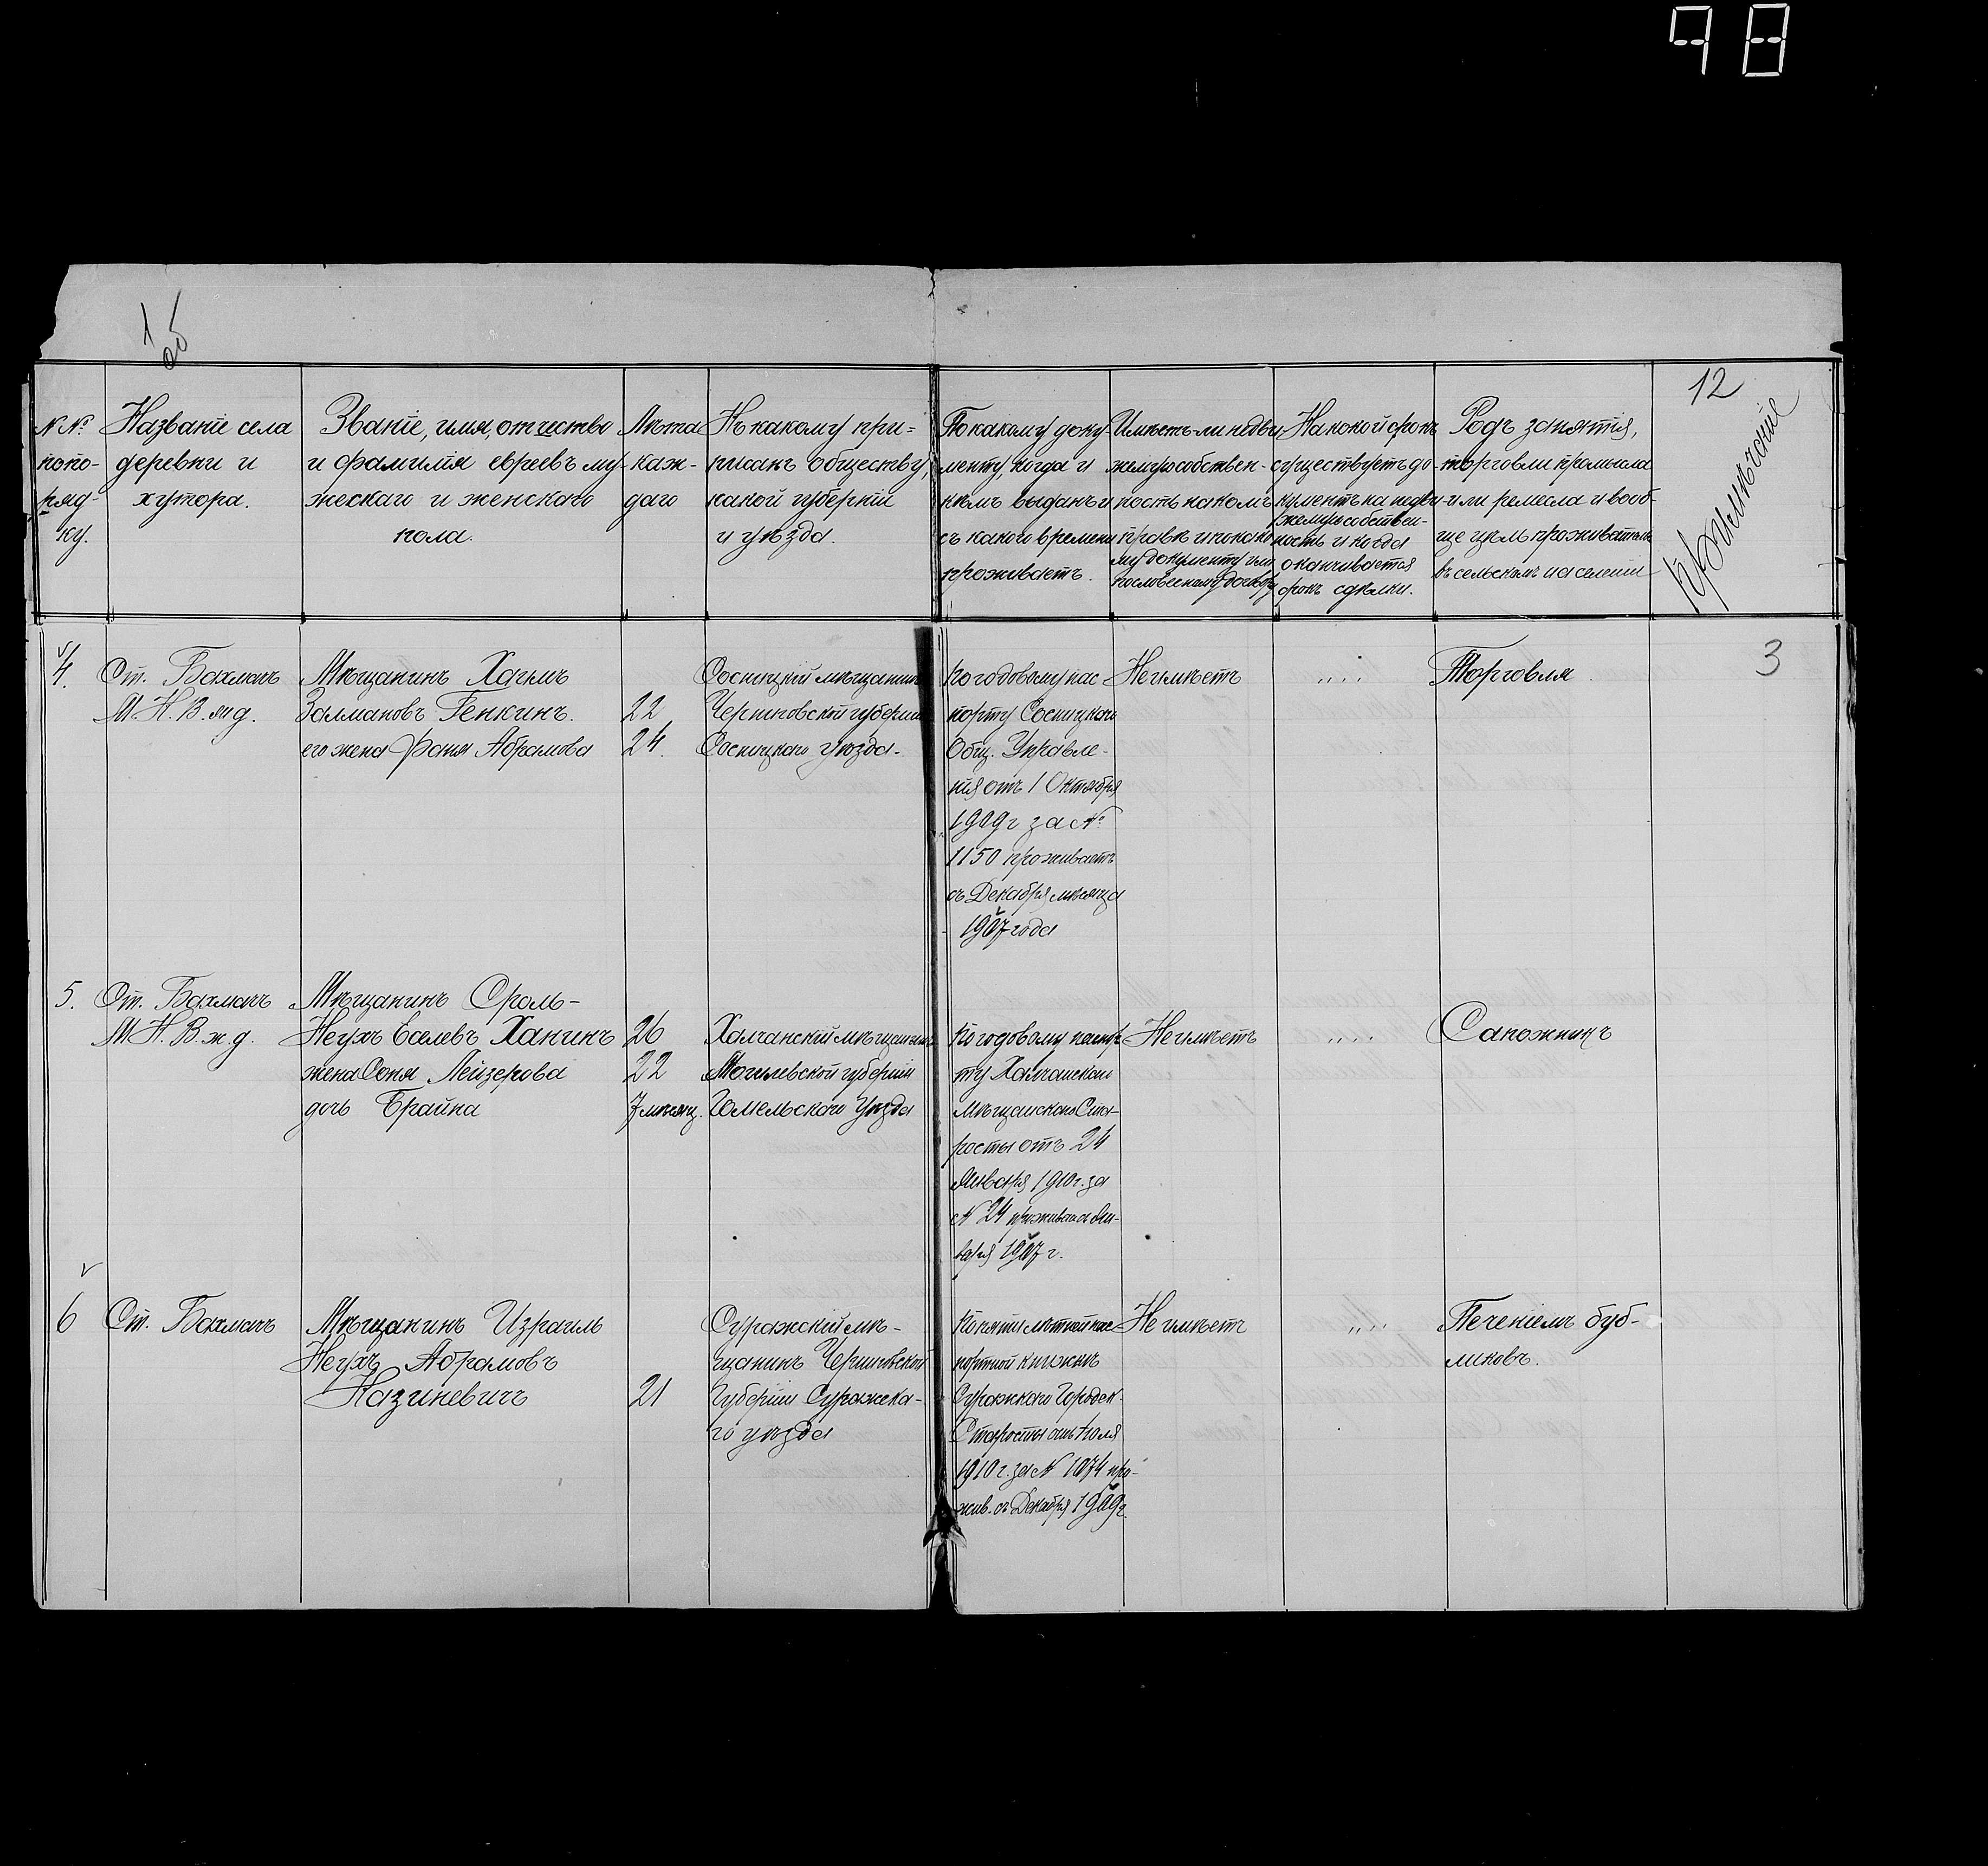 98
1
об
12
3
№№
попо-
ряд-
ку.
Названіе села
деревни и
хутора.
Званіе, имя, отчество
и фамилія евреевъ му-
жескаго и женскаго
пола.
Лѣта
каж-
даго
Къ какому при-
писанъ обществу,
какой губерніи
и уѣзда.
По какому доку-
менту, когда и
кѣмъ выданъ и
съ какого времени
проживаетъ.
Имѣетъ-ли недви
жимую собствен-
ность на какомъ
правѣ и по како
му документу или
по словесному договору
На какой срокъ
существуетъ до-
кументъ на недви
жемую собствен-
ность и когда
оканчивается
срокъ сдѣлки.
Родъ занятія,
торговли промысла
или ремесла и вооб-
ще чѣмъ проживаетъ
въ сельскомъ населеніи
Примѣчаніе
4.
Ст. Бахмачъ
М.К.В. ж д.
Мѣщанинъ Хаимъ
Залмановъ Генкинъ.
его жена Фаня Абрамова
22
24.
Сосницкій мѣщанинъ
Черниговской губерніи
Сосницкаго уѣзда.
по годовому пас
порту Сосницкаго
Общ. Управле-
нія отъ 1 Октября
1909 г за №
1150 проживаетъ
съ Декабря мѣсяца
1907 года
Не имѣетъ
" "
Торговля
5.
Ст. Бахмачъ
М К. В. ж. д.
Мѣщанинъ Сроль-
Неухъ Евелевъ Ханинъ
жена Соня Лейзерова
дочь Брайна
26
22
7 мѣсяц.
Халчанскій мѣщанинъ
Могилевской губерніи
Гомельского Уѣзда
по годовому паспор
ту Халчанскаго
Мѣщанскаго Ста-
росты отъ 24
Января 1910 г. за
№ 24 прожива съ Ян-
варя 1907 г.
Не имѣетъ
" "
Сапожникъ
6
Ст. Бахмачъ
Мѣщанинъ Израиль
Неухъ Абрамовъ
Казиневичъ
21
Суражскій мѣ-
щанинъ Черниговской
Губерніи Суражска-
го уѣзда
по пяти лѣтней пас
портной книжкѣ
Суражскаго Городск.
Старосты
1910 г. за № 1074 про-
жив. съ Декабря 1909 г.
Не имѣетъ
" "
Печеніемъ буб-
ликовъ.